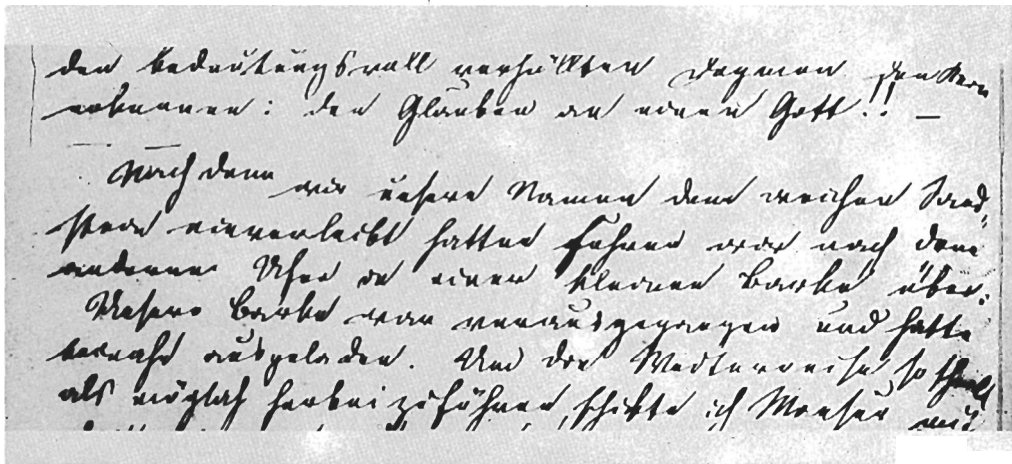 den bedeutungsvoll verhüllten Dogmen den Kern
erkennen: den Glauben an einen Gott!! —
Nach dem wir unsere Namen dem weichen Sand-
stein einverleibt hatten fuhren wir nach dem
anderen Ufer in einer kleinen Barke über.
Unsere Barke war vorausgegangen und hatte
beinahe ausgeladen. Um die Weiterreise so schnell
als möglich herbeizuführen, schickte ich Monsieur mit